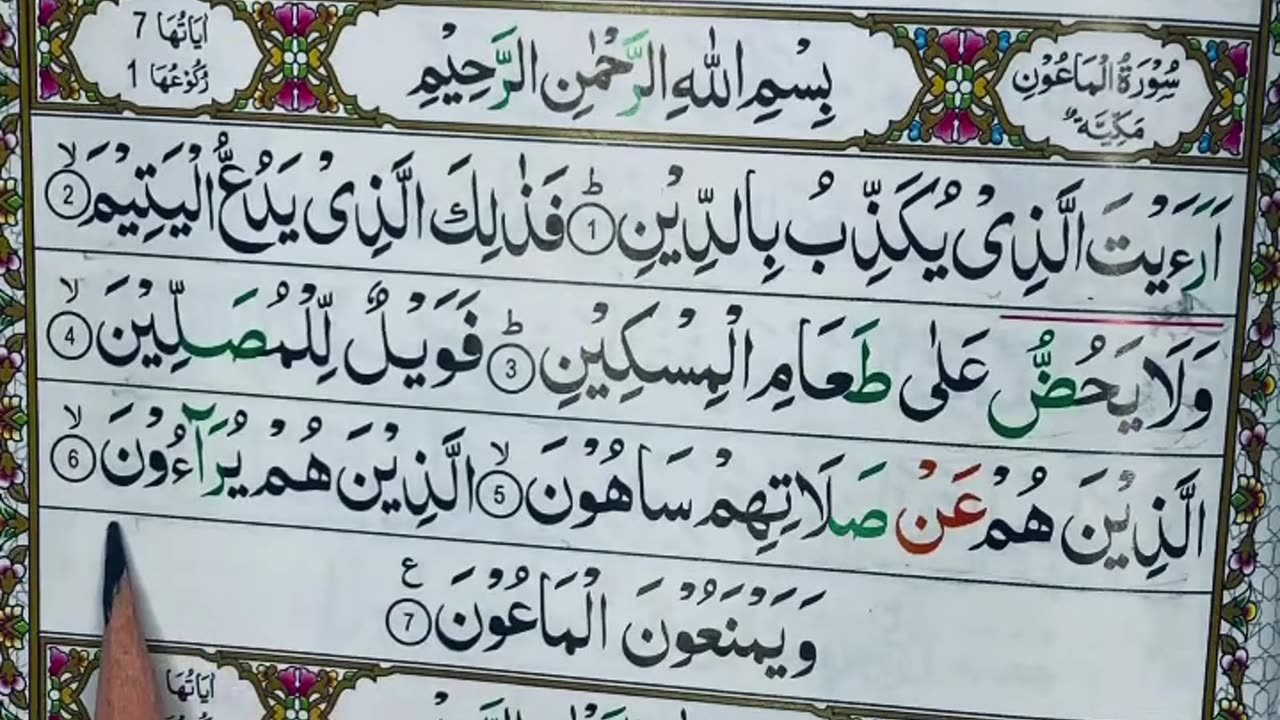 سُوْرَةُ الْمَاعُوْنِ مَكِّيَّة
بِسْمِ اللّٰهِ الرَّحْمٰنِ الرَّحِيْمِ
اٰيَاتُهَا 7
رُكُوْعُهَا 1
اَرَءَيْتَ الَّذِىْ يُكَذِّبُ بِالدِّيْنِ ؕ 1 فَذٰلِكَ الَّذِىْ يَدُعُّ الْيَتِيْمَ ۙ 2
وَلَا يَحُضُّ عَلٰى طَعَامِ الْمِسْكِيْنِ ؕ 3 فَوَيْلٌ لِّلْمُصَلِّيْنَ ۙ 4
الَّذِيْنَ هُمْ عَنْ صَلَاتِهِمْ سَاهُوْنَ ۙ 5 الَّذِيْنَ هُمْ يُرَآءُوْنَ ۙ 6
وَيَمْنَعُوْنَ الْمَاعُوْنَ ع 7
اٰيَاتُهَا